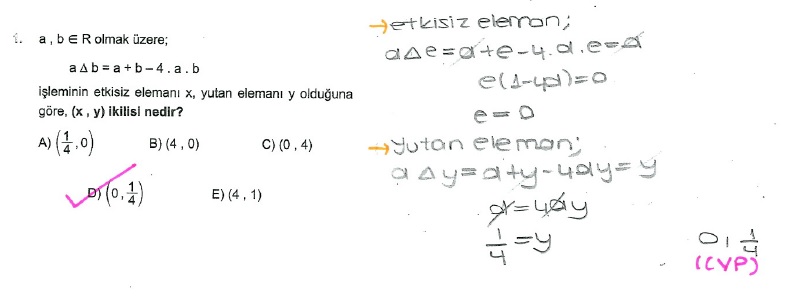 1. a , b ∈ R olmak üzere;
a Δ b = a + b – 4 . a . b
işleminin etkisiz elemanı x, yutan elemanı y olduğuna
göre, (x , y) ikilisi nedir?
A) (1/4 , 0) B) (4 , 0) C) (0 , 4)
D) (0 , 1/4) E) (4 , 1)
→ etkisiz eleman;
a Δ e = a + e - 4.a.e = a
e(1-4a) = 0
e = 0
→ Yutan eleman;
a Δ y = a + y - 4ay = y
a = 4ay
1/4 = y
0, 1/4
(CVP)